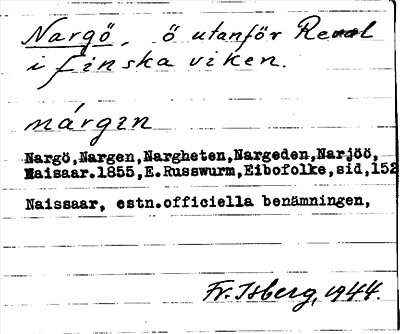 Nargö, ö utanför Reval
i finska viken.
márgin
Nargö,Nargen,Nargheten,Nargeden,Narjöö,
Naisaar.1855,E.Russwurm,Eibofolke,sid,152
Naissaar, estn.officiella benämningen,
Fr. Isberg, 1944.